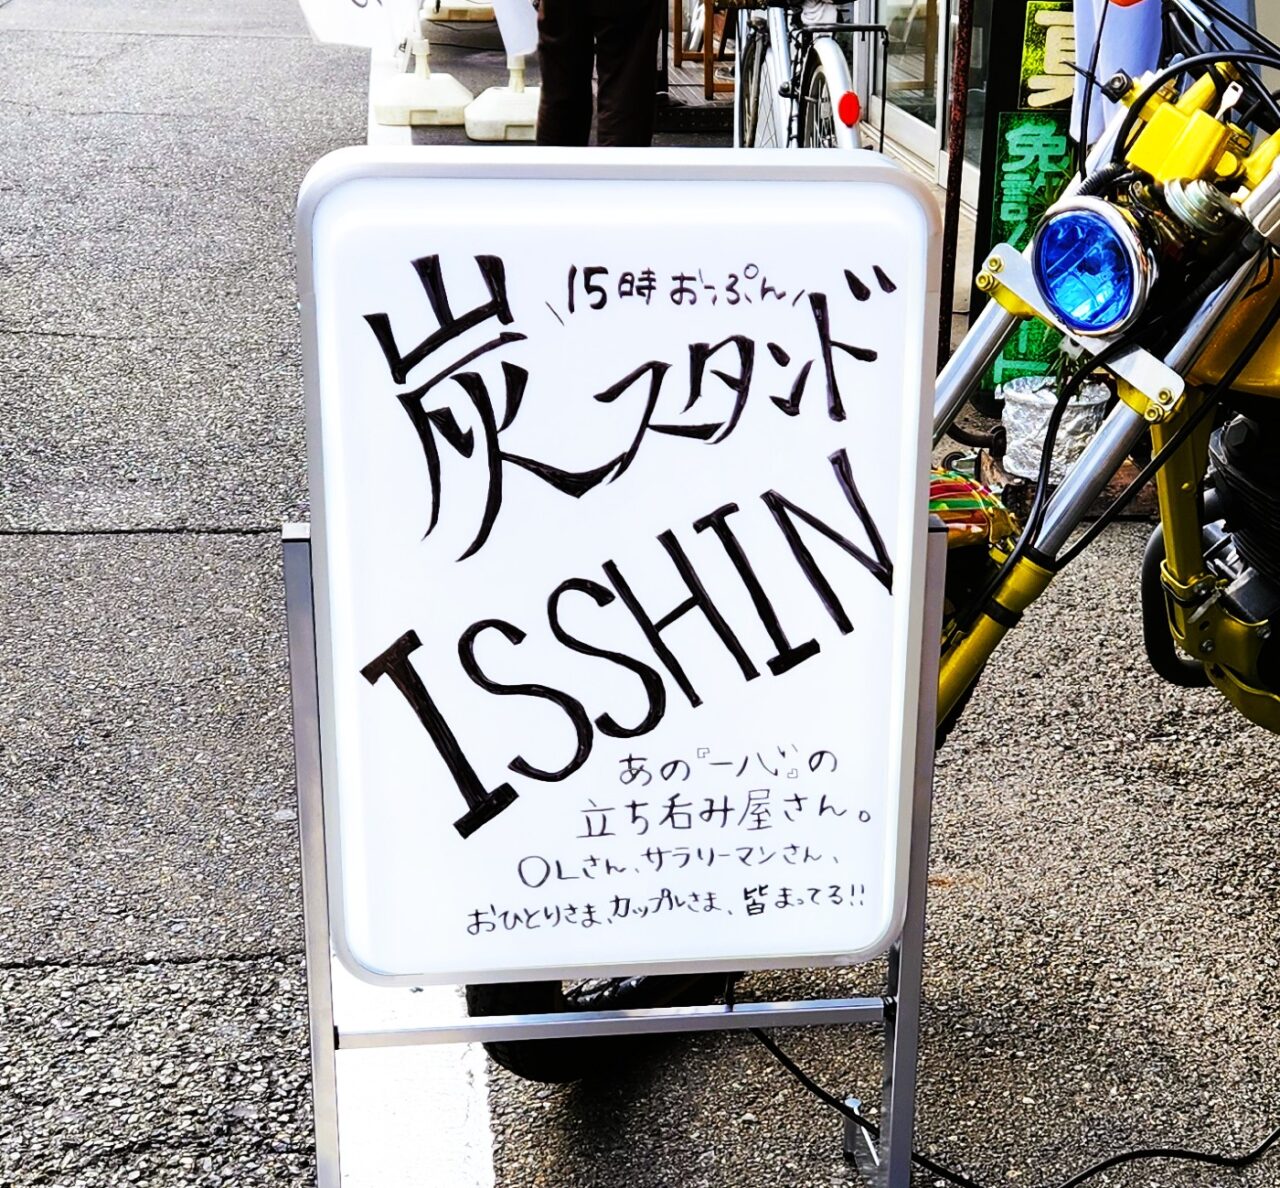 \15時おっぷん/
炭スタンド
ISSHIN
あの『一心』の
立ち呑み屋さん。
OLさん、サラリーマンさん、
おひとりさま、カップルさま、皆まってる!!
免許